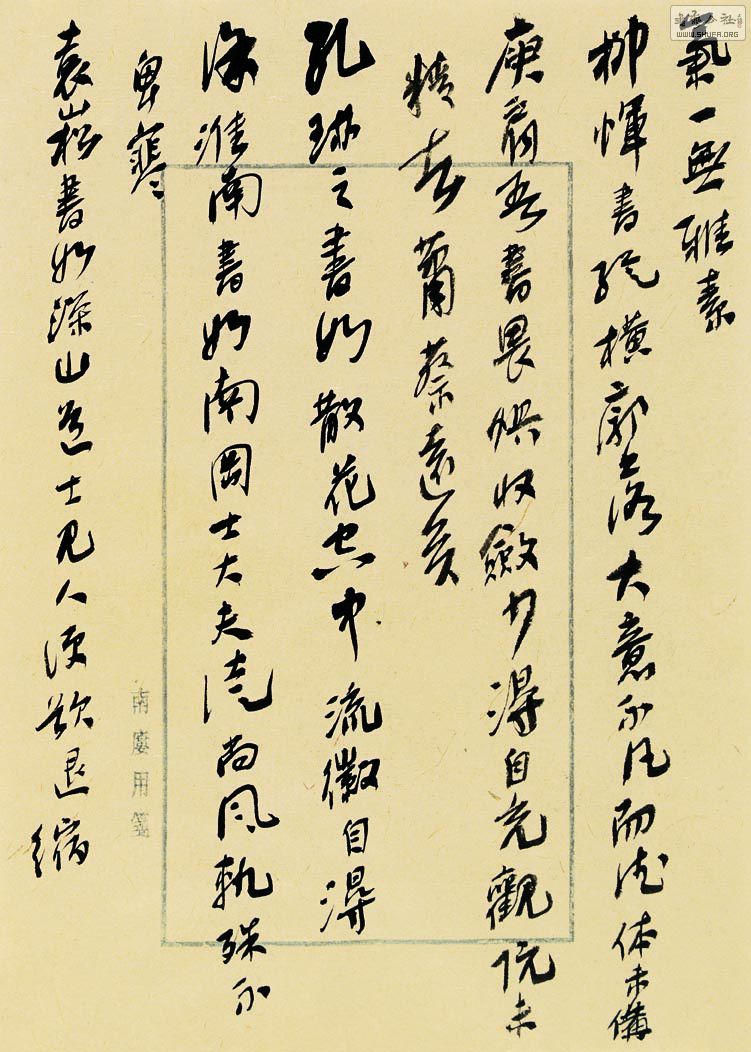 氣一無雅素
柳惲書縱橫廓落大意不凡而德体未備
庾肩吾書畏懼收斂少得自充觀阮未
精去蕭蔡遠矣
孔琳之書如散花空中流徽自得
徐淮南書如南岡士大夫徒尚風軌殊不
卑寒
袁崧書如深山道士見人便欲退縮
南廔用箋
WWW.SHUFA.ORG